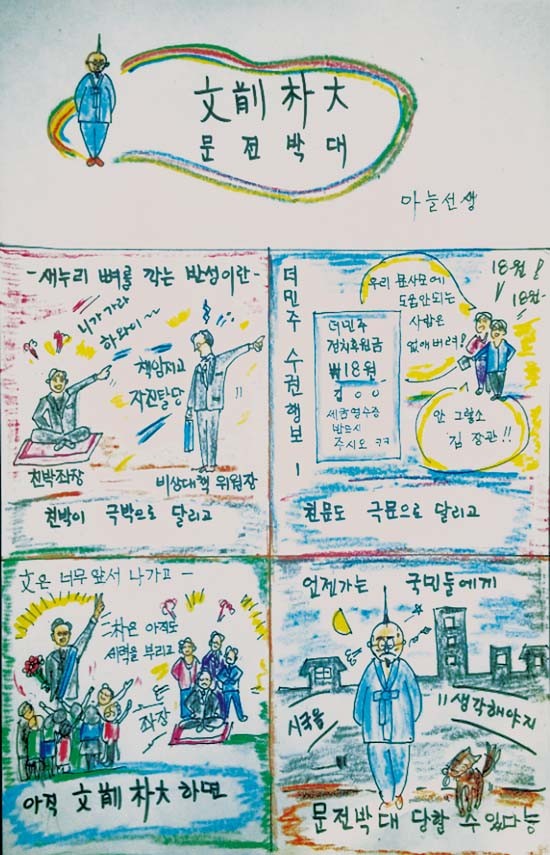 文前朴大
문전박대
마늘선생
-새누리 뼈를 깎는 반성이란-
니가가라
하와이~~
책임지고
자진탈당
친박좌장
비상대책 위원장
친박이 극박으로 달리고
더민주 수권행보 1
우리 문사모에
도움안되는
사람은
없애버려!
18원!
18원~
더민주
정치후원금
₩18원
김○○
세금영수증
반드시
주시오 ㅋㅋ
안 그렇소
김 장관!!
친문도 극문으로 달리고
文은 너무 앞서 나가고 -
朴은 아직도
세력을 부리고
좌장
아직 文前朴大 하면
언젠가는 국민들에게
시국을
생각해야지
문전박대 당할 수 있다능